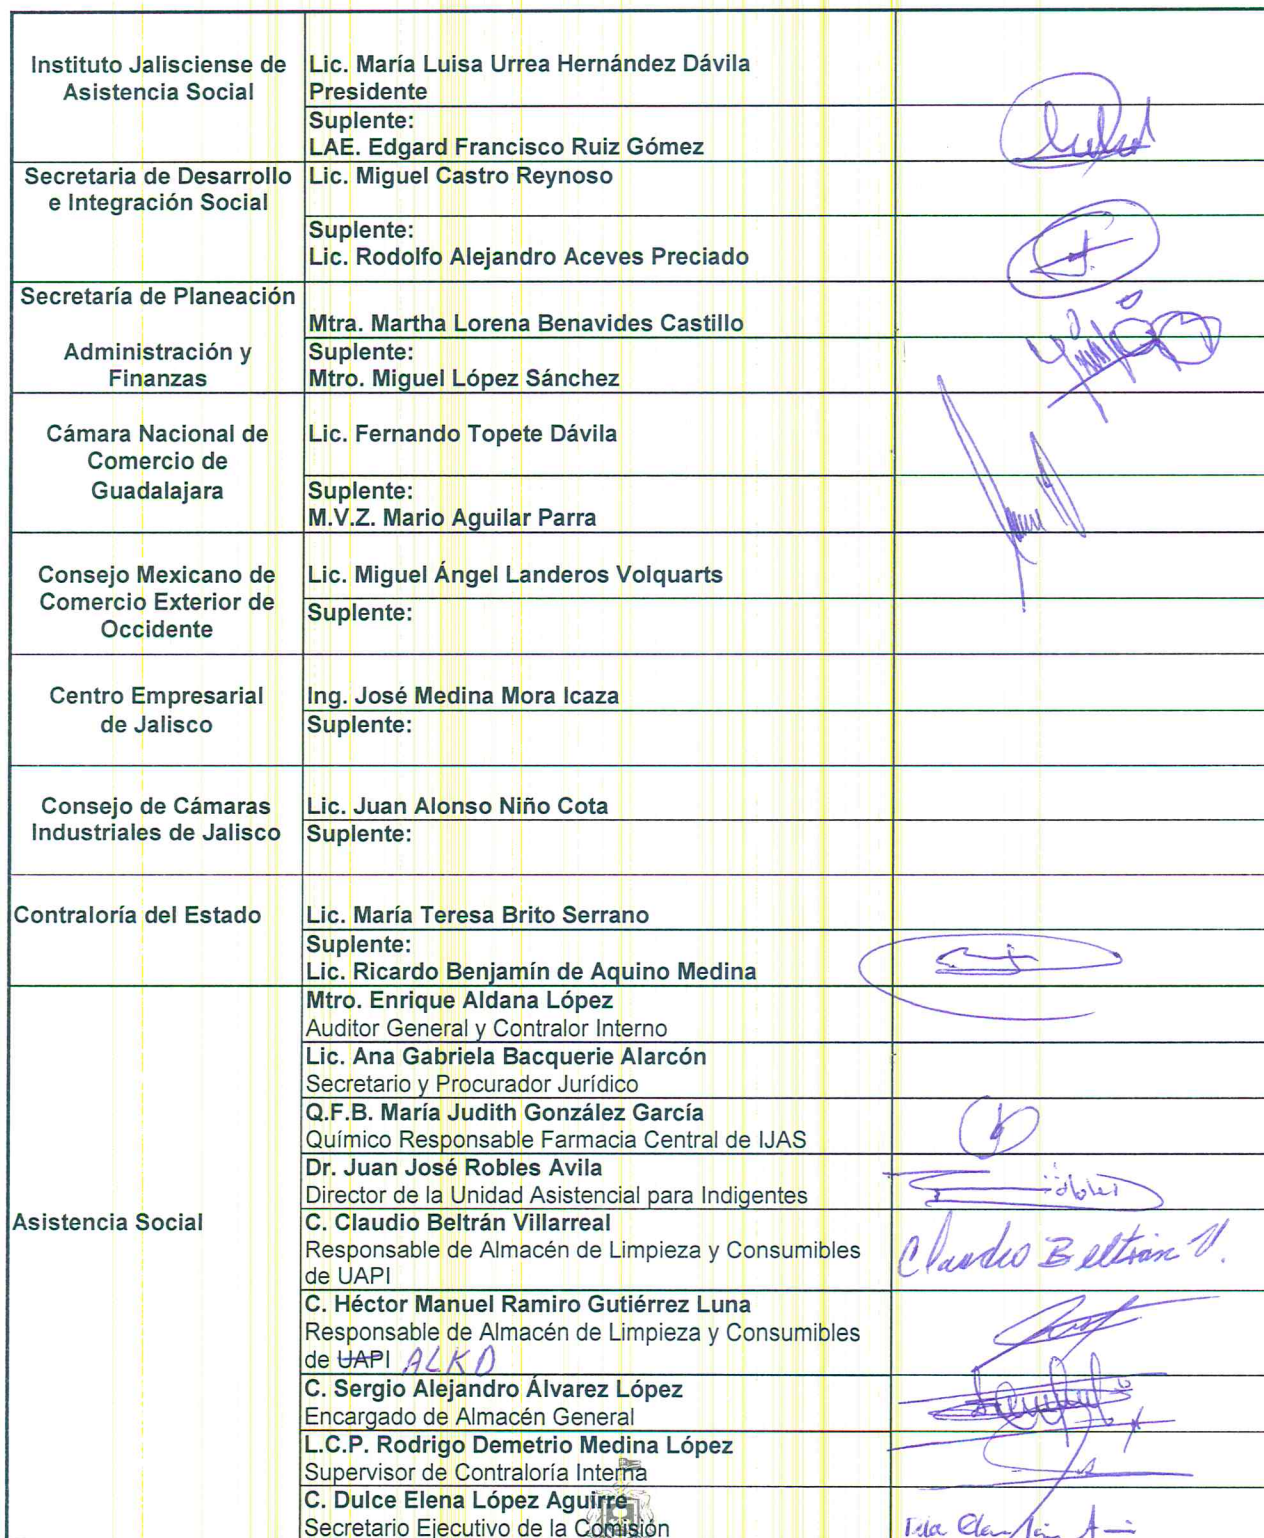 Instituto Jalisciense de
Asistencia Social
Lic. María Luisa Urrea Hernández Dávila
Presidente
Suplente:
LAE. Edgard Francisco Ruiz Gómez
Secretaria de Desarrollo
e Integración Social
Lic. Miguel Castro Reynoso
Suplente:
Lic. Rodolfo Alejandro Aceves Preciado
Secretaría de Planeación
Administración y
Finanzas
Mtra. Martha Lorena Benavides Castillo
Suplente:
Mtro. Miguel López Sánchez
Cámara Nacional de
Comercio de
Guadalajara
Lic. Fernando Topete Dávila
Suplente:
M.V.Z. Mario Aguilar Parra
Consejo Mexicano de
Comercio Exterior de
Occidente
Lic. Miguel Ángel Landeros Volquarts
Suplente:
Centro Empresarial
de Jalisco
Ing. José Medina Mora Icaza
Suplente:
Consejo de Cámaras
Industriales de Jalisco
Lic. Juan Alonso Niño Cota
Suplente:
Contraloría del Estado
Lic. María Teresa Brito Serrano
Suplente:
Lic. Ricardo Benjamín de Aquino Medina
Asistencia Social
Mtro. Enrique Aldana López
Auditor General y Contralor Interno
Lic. Ana Gabriela Bacquerie Alarcón
Secretario y Procurador Jurídico
Q.F.B. María Judith González García
Químico Responsable Farmacia Central de IJAS
Dr. Juan José Robles Avila
Director de la Unidad Asistencial para Indigentes
C. Claudio Beltrán Villarreal
Responsable de Almacén de Limpieza y Consumibles
de UAPI
Claudio Beltrán V.
C. Héctor Manuel Ramiro Gutiérrez Luna
Responsable de Almacén de Limpieza y Consumibles
de UAPI ALKD
C. Sergio Alejandro Álvarez López
Encargado de Almacén General
L.C.P. Rodrigo Demetrio Medina López
Supervisor de Contraloría Interna
C. Dulce Elena López Aguirre
Secretario Ejecutivo de la Comisión